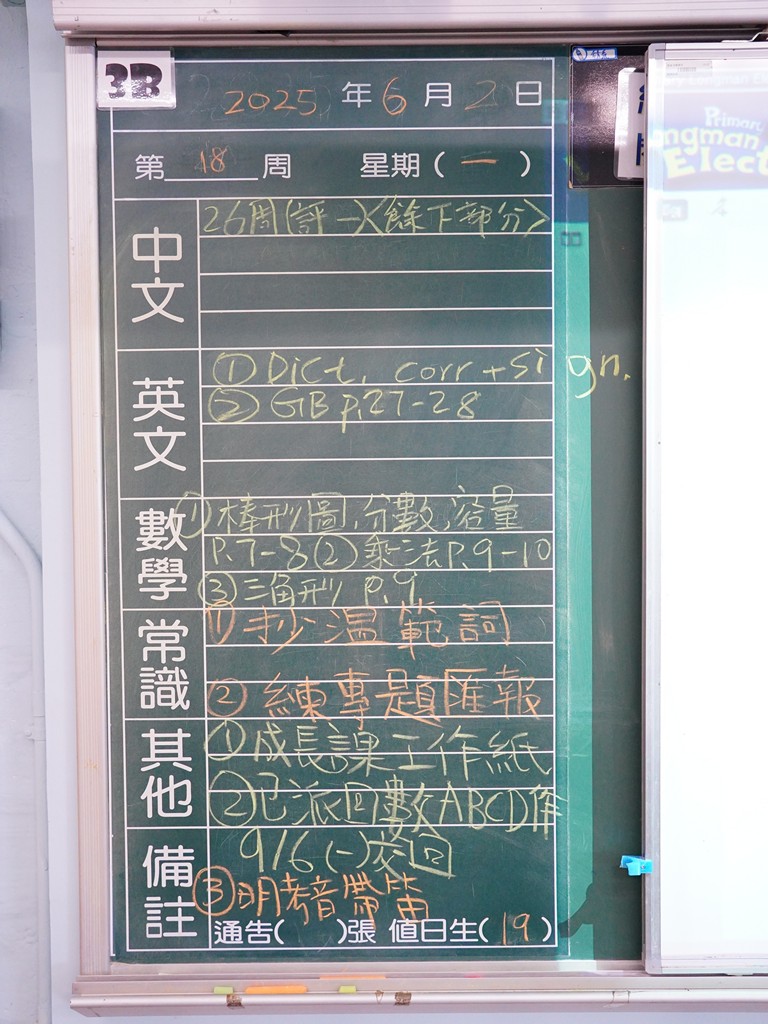 3B
2025 年 6 月 2 日
第 18 周 星期( 一 )
中文
26周(評一)<餘下部分>
英文
① Dict. corr + sign.
② GB p.27-28
數學
① 棒形圖,分數,容量
P.7-8 ② 乘法P.9-10
③ 三角形 P.9
常識
① 抄溫範詞
② 練專題匯報
其他
① 成長課工作紙
② 已派回數ABCD作
備註
9/6 (一)交回
③ 明考音帶笛
通告( )張 值日生( 19 )
Primary
Longman
Elect